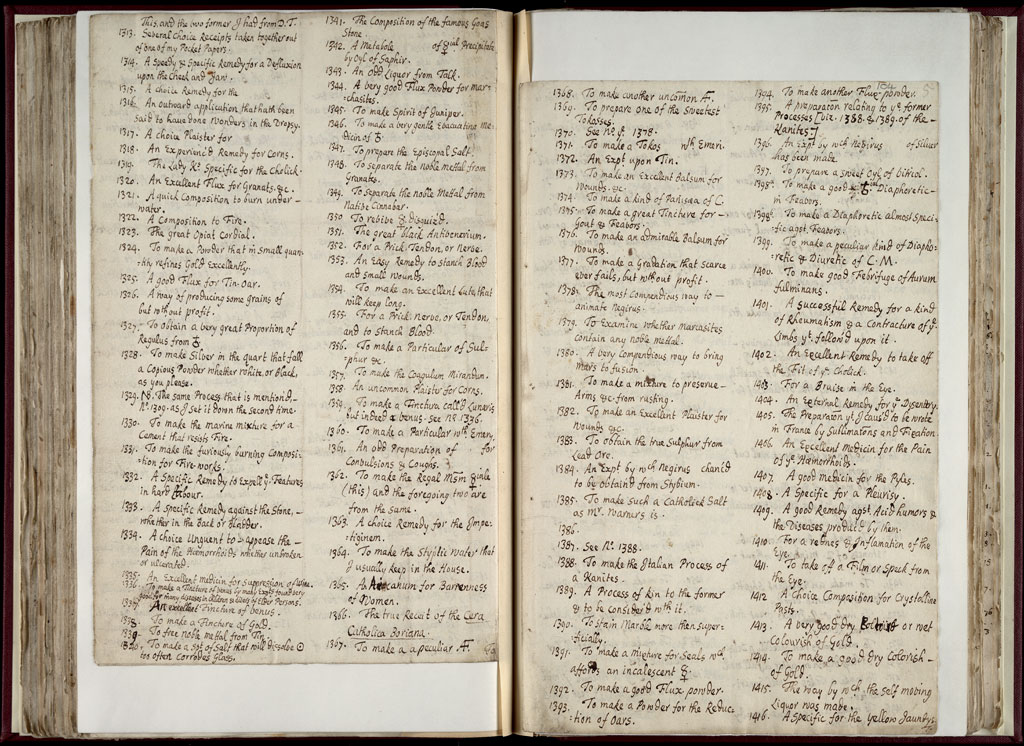 This, and the two former I had from D.T.
1313. Several Choice Receipts taken together out
of one of my Pocket Papers.
1314. A Speedy & Specific Remedy for a Defluxion
upon the Cheek and Jaw.
1315. A choice Remedy for the
1316. An outward application that hath been
said to have done Wonders in the Dropsy.
1317. A choice Plaister for
1318. An Experienc'd Remedy for Corns.
1319. The Lady K's Specific for the Cholick.
1320. An Excellent Flux for Granats. &c.
1321. A quick Composition to burn under
water.
1322. A Composition to Fire.
1323. The great Opiat Cordial.
1324. To make a Powder that in Small quan
tity refines Gold Excellently.
1325. A good Flux for Tin-Oar.
1326. A way of producing some grains of
but without profit.
1327. To obtain a very great Proportion of
Regulus from ♁
1328. To make Silver in the quart that fall
a Copious Powder whether white or black,
as you please.
1329. NB. The same Process that is mention'd
No. 1309. as I set it down the second time.
1330. To make the marine mixture for a
Cement that resists Fire.
1331. To make the furiously burning Composi
tion for Fire-works.
1332. A Specific Remedy to Expell ye Features
in hard labour.
1333. A Specific Remedy against the Stone,
whether in the Back or Bladder.
1334. A choice Unguent to appease the
Pain of the Hæmorrhoids whether unbroken
or ulcerated.
1335. An Excellent medicin for Suppression of Urine.
1336. To make a Tincture of Venus by many Expts found very
good for many diseases in children & divers of Elder Persons.
1337. An excellent Tincture of Venus.
1338. To make a Tincture of Gold.
1339. To free noble mettal from Tin.
1340. To make a Spt of Salt that will dissolve ☉
too often Corrodes Glass.
1341. The Composition of the famous Goas
Stone
1342. A Metabole of ♀ual Precipitate
by Oyl of Saphir.
1343. An Odd Liquor from Talk.
1344. A very good Flux Powder for mar
chasites.
1345. To make Spirit of Juniper.
1346. To make a very gentle Evacuating Me
dicin of ♁
1347. To prepare the Episcopal Salt.
1348. To separate the noble mettal from
Granats.
1349. To separate the noble Mettal from
Native Cinnaber.
1350. To revive ☿ disguiz'd.
1351. The great black Antivenerium.
1352. For a Prick, Tendon, or Nerve.
1353. An Easy Remedy to Stanch Blood
and Small wounds.
1354. To make an Excellent Lute, that
will keep long.
1355. For a Prick, nerve, or Tendon,
and to Stanch Blood.
1356. To make a Particular of Sul
phur &c.
1357. To make the Coagulum Mirandum.
1358. An uncommon Plaister for Corns.
1359. To make a Tinctura call'd Lunaris
but indeed a venus. see No. 1336.
1360. To make a Particular wth Emery.
1361. An odd Preparation of for
Convulsions & Coughs.
1362. To make the Regal Msm
(this) and the foregoing two are
from the same.
1363. A choice Remedy for the Impe
tiginem.
1364. To make the Styptic water that
I usually keep in the House.
1365. An Arcanum for Barrenness
of Women.
1366. The true Receit of the Cera
Catholica Boriana.
1367. To make a peculiar Æ.
1368. To make another uncomon Æ.
1369. To prepare one of the Sweetest
Tokasses.
1370. See No. ye. 1378.
1371. To make a Tokos wth Emeri.
1372. An Expt upon Tin.
1373. To make an Excellent Balsum for
Wounds. &c.
1374. To make a kind of Panacæa of C.
1375. To make a great Tincture for
Gout & Feavors.
1376. To make an admirable Balsum for
Wounds.
1377. To make a Gradation that scarce
ever fails, but without profit.
1378. The most Compendious way to
animate Negirus.
1379. To Examine whether marcasites
contain any noble mettal.
1380. A very Compendious way to bring
Mars to fusion.
1381. To make a mixture to preserve
Arms &c. from rusting.
1382. To make an Excellent Plaister for
Wounds &c.
1383. To obtain the true Sulphur from
Lead Ore.
1384. An Expt by wch Negirus chanc'd
to be obtain'd from Stybium.
1385. To make such a Catholick Salt
as Mr. Warners is.
1386.
1387. See No. 1388.
1388. To make the Italian Process of
a Ranites.
1389. A Process of kin to the former
& to be consider'd with it.
1390. To Stain Marble more then super
ficially.
1391. To make a mixture for Seals wch
affords an incalescent ☿
1392. To make a good Flux powder.
1393. To make a Powder for the Reduc
tion of Oars.
184
1394. To make another Flux-powder.
1395. A preparation relating to ye former
Processes [viz. 1388. & 1389. of the
Ranites]
1396. An Expt by wch Negirus of Silver
has been made.
1397. To prepare a sweet Oyl of vitriol.
1398. To make a good Diaphoretic
in Feavors.
1398. To make a Diaphoretic almost Speci
fic agst. Feavors.
1399. To make a peculiar kind of Diapho
retic & Diuretic of C.M.
1400. To make good Febrifuge of Aurum
fulminans.
1401. A successful Remedy for a kind
of Rheumatism & a Contracture of ye
Limbs yt. follow'd upon it.
1402. An Excellent Remedy to take off
the Fit of ye Cholick.
1403. For a Bruise in the Eye.
1404. An External Remedy for ye Dysentery.
1405. The Preparaton yt. I caus'd to be wrote
in France by Sublimations and Fixation.
1406. An Excellent Medicin for the Pain
of ye Hæmorrhoids.
1407. A good medicin for the Pyles.
1408. A Specific for a Pleurisy.
1409. A good Remedy agst. Acid humors &
the Diseases produc'd by them.
1410. For a rednes & Inflamation of the
Eye.
1411. To take off a Film or Speck from
the Eye.
1412 A choice Composition for Crystalline
Pasts.
1413. A very good dry or wet
Colourish of Gold.
1414. To make a good dry Colorish
of Gold.
1415. The way by wch the self moving
Liquor was made.
1416. A Specific for the Yellow Jaundys